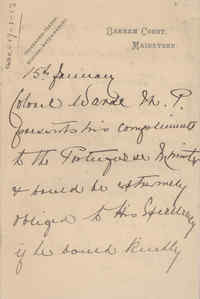 BARHAM COURT,
MAIDSTONE.
15th January
Colonel Warde M.P.
presents his compliments
to the Portuguese Minister
& would be extremely
obliged to His Excellency
if he would kindly